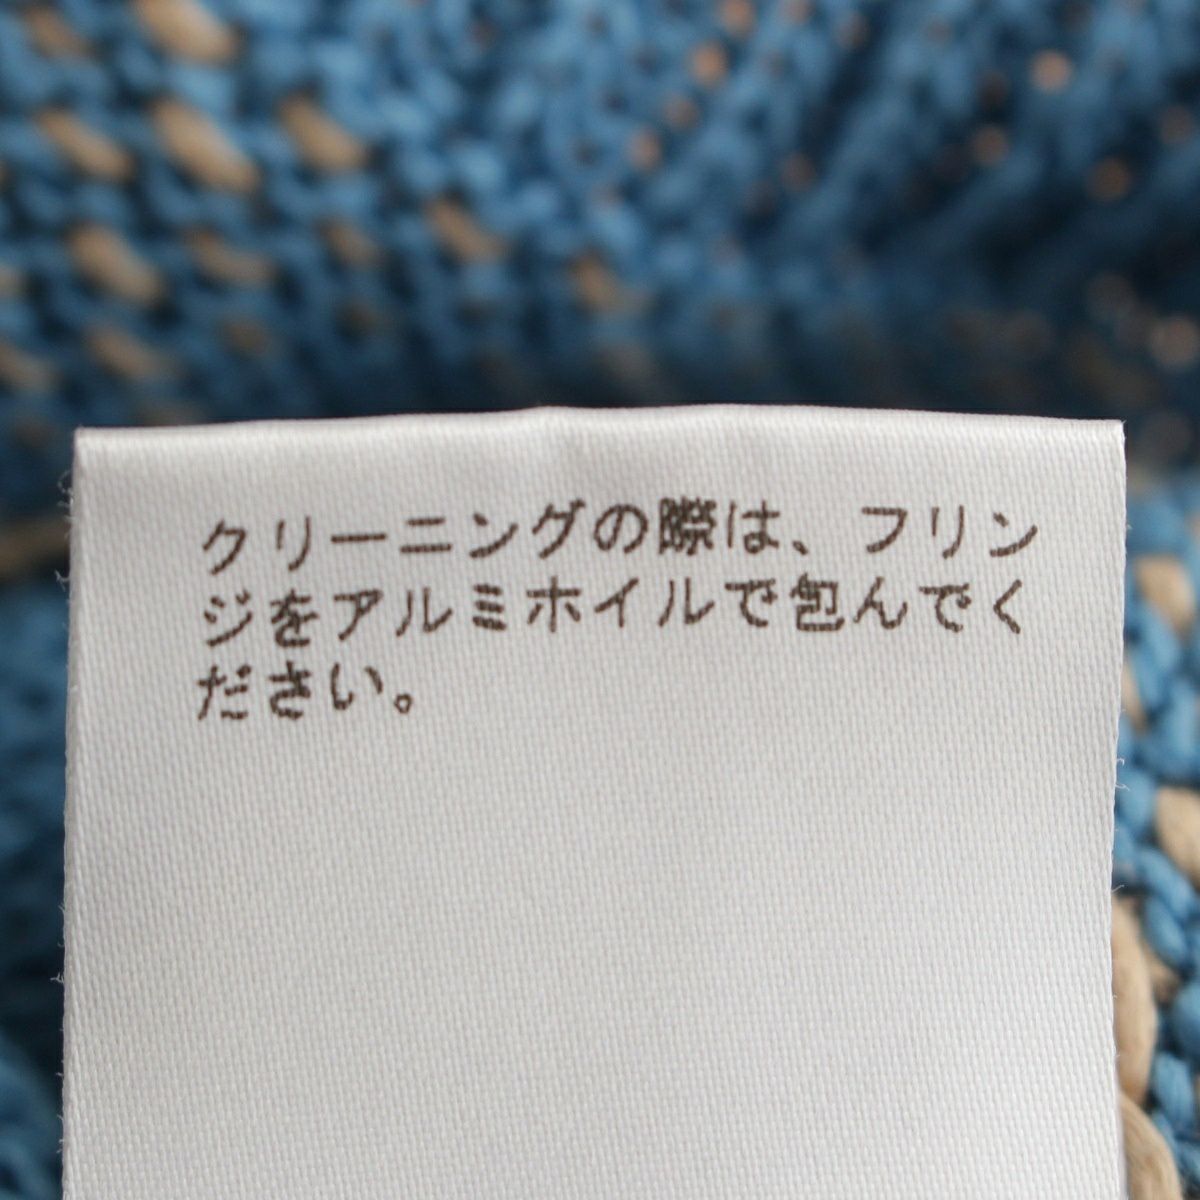 クリーニングの際は、フリン
ジをアルミホイルで包んでく
ださい。